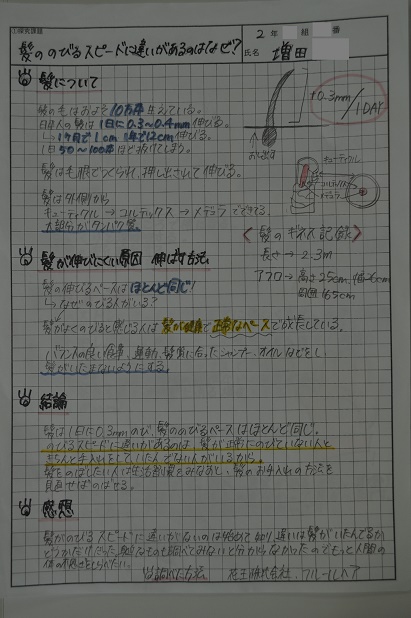 髪ののびるスピードに違いがあるのはなぜ?
2年 組 番
氏名 増田
髪について
髪の毛はおよそ10万本生えている。
日本人の髪は1日に0.3~0.4mm伸びる。
→1ヶ月で1cm 1年で12cm伸びる。
1日50~100本ほど抜けてしまう。
髪は毛根でつくられ、押し出されて伸びる。
髪は外側から
キューティクル→コルテックス→メデュラでできてる。
大部分がタンパク質。
+0.3mm/1DAY
おし出す
キューティクル
コルテックス
メデュラ
《髪のギネス記録》
長さ→2.3m
アフロ→高さ25cm, 幅26cm
周囲165cm
髪が伸びにくい原因 伸ばす方法
髪の伸びるペースはほとんど同じ!
→なぜのびる人がいる?
髪がはやくのびると感じる人は髪が健康で正常なペースで成長している。
バランスの良い食事、運動、髪質に合ったシャンプー、オイルなどをし、
髪がいたまないようにする。
結論
髪は1日に0.3mmのび、髪ののびるペースはほとんど同じ。
のびるスピードに違いがあるのは、髪が正常にのびていない人と
きちんと手入れをしていた人、でない人がいるから。
髪をのばしたい人は生活習慣をみなおし、髪のお手入れの方法を
見直せばのばせる。
感想
髪がのびるスピードに違いがないのは始めて知り、違いは髪がいたんでるか
どうかだけだった。身近なものも調べてみないと分からなかったのでもっと人間の
体の不思議をしらべたい。
調べた方法 花王株式会社, クルールヘア